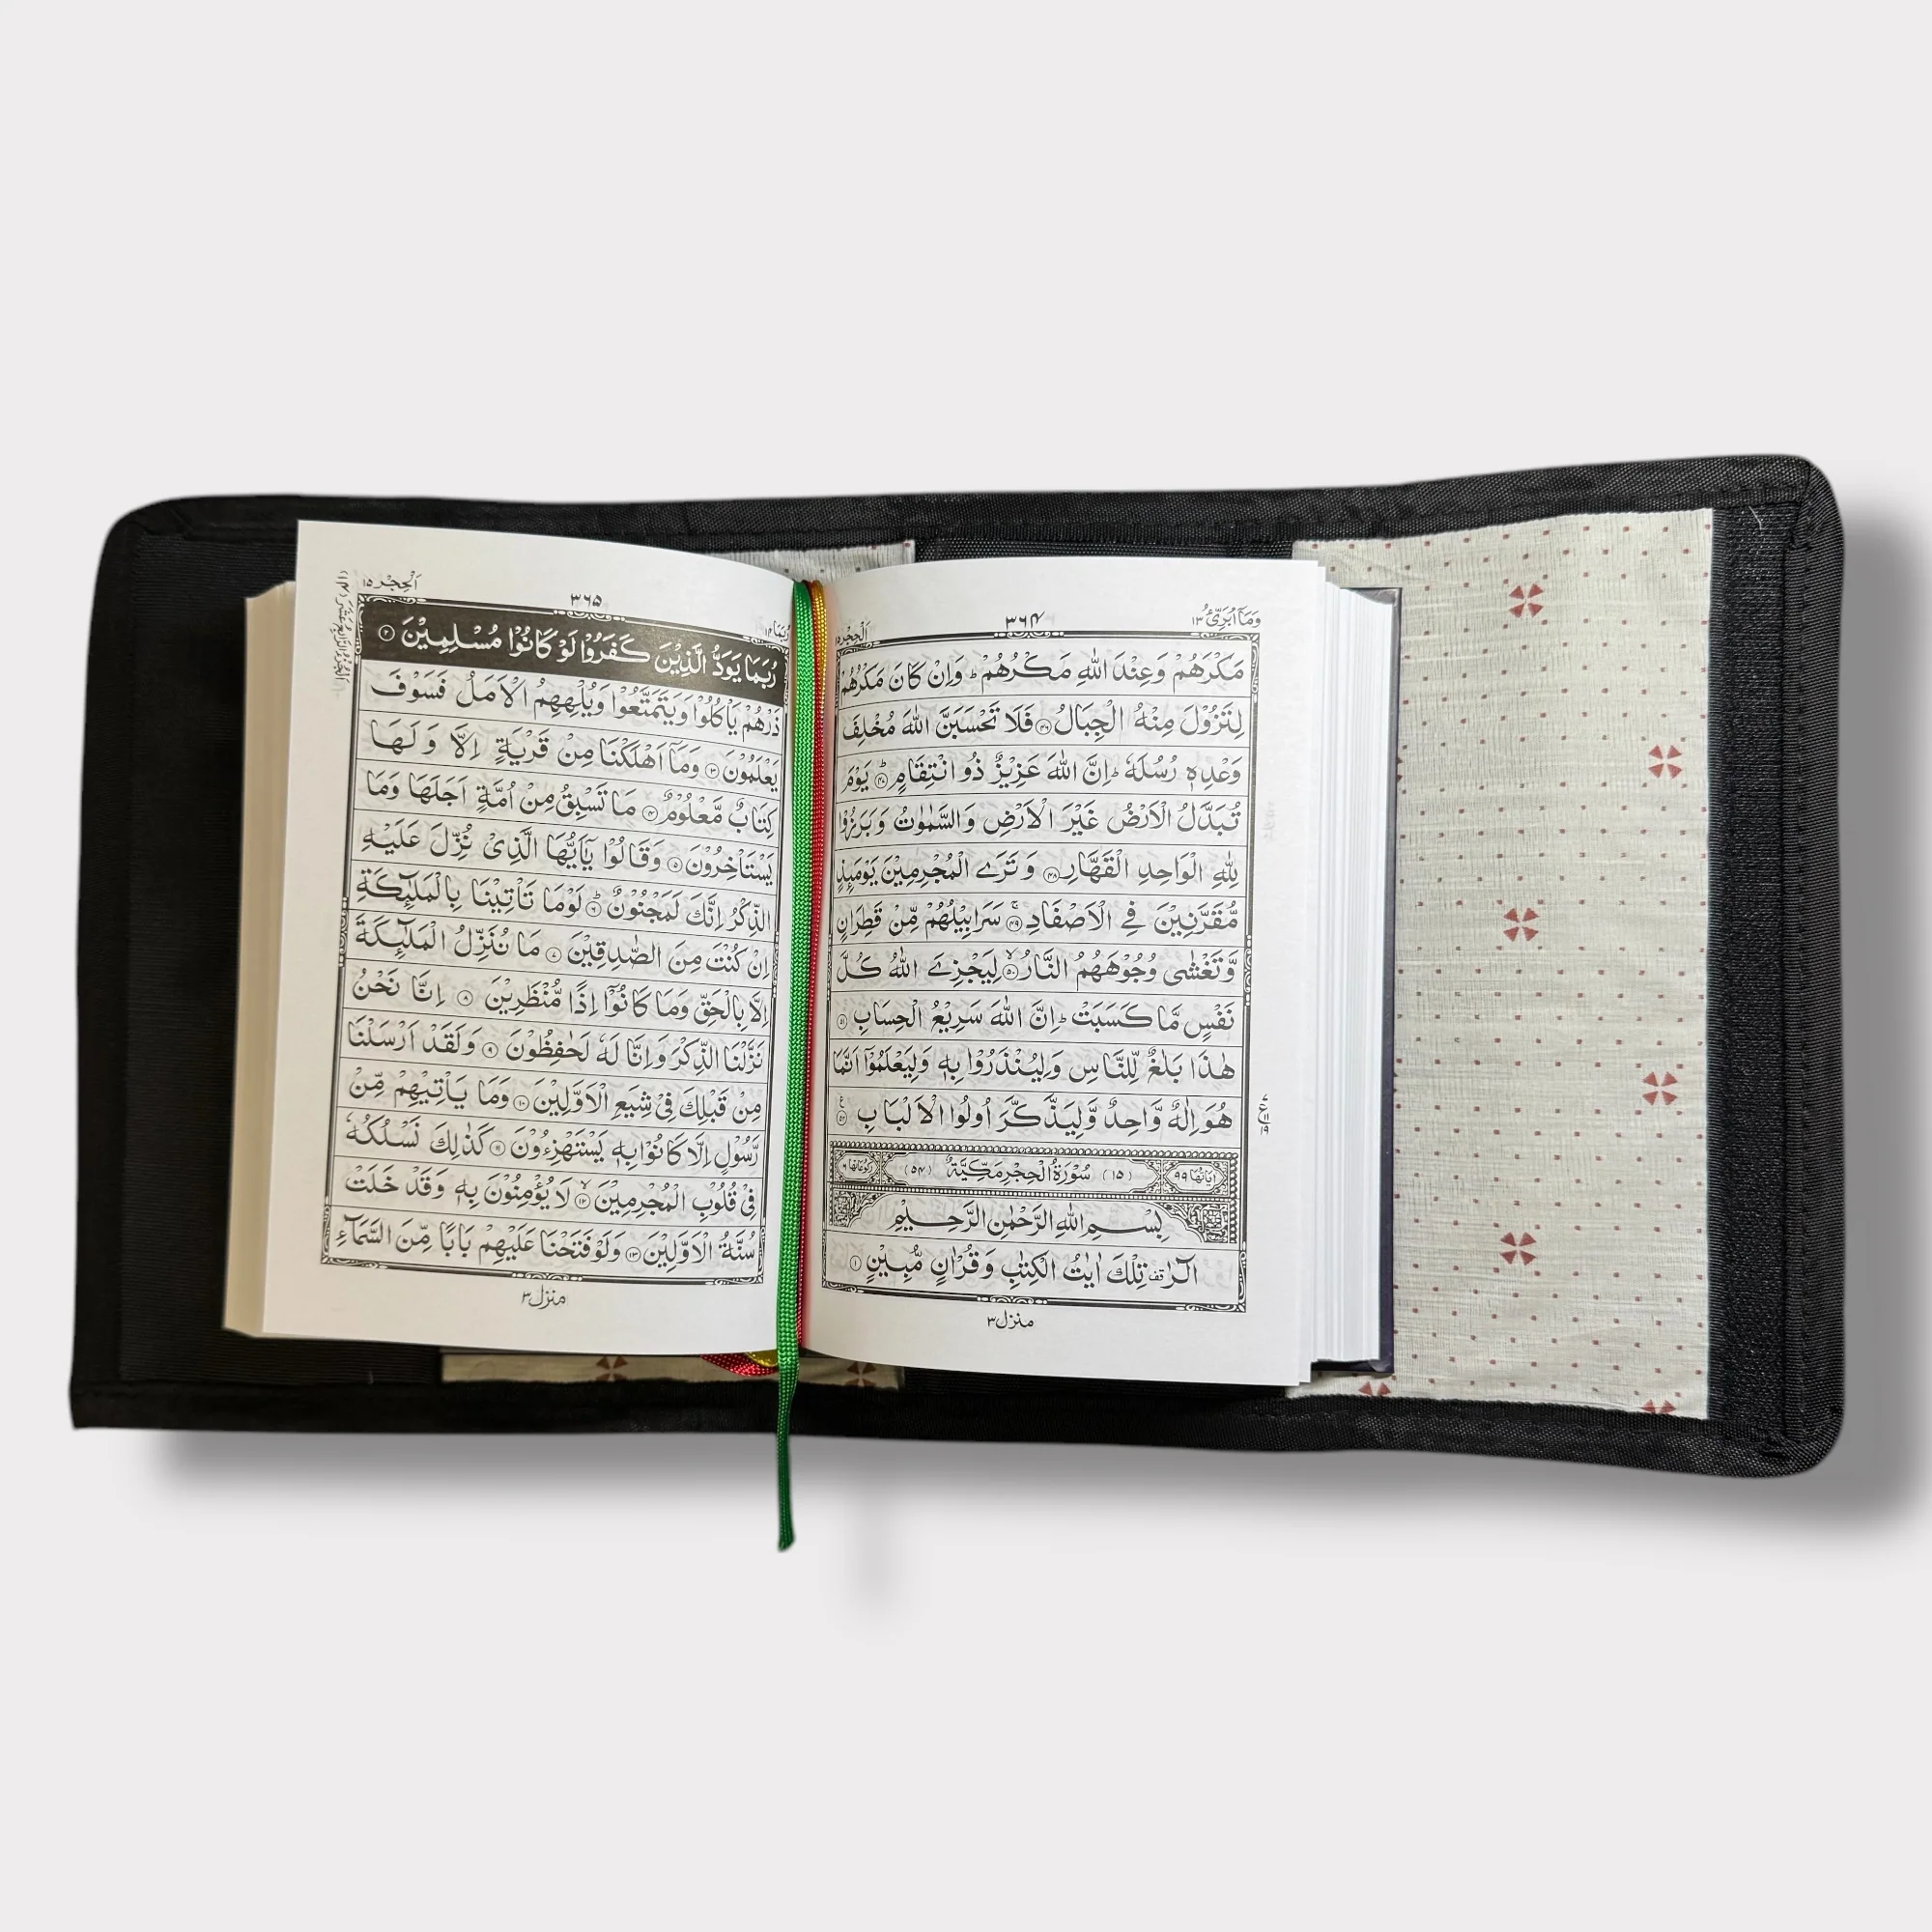 وَمَآ اُبَرِّئُ ١٣
٣٦٤
اَلْحِجْر ١٥
مَكْرَهُمْ وَعِنْدَ اللّٰهِ مَكْرُهُمْ ؕ وَاِنْ كَانَ مَكْرُهُمْ
لِتَزُوْلَ مِنْهُ الْجِبَالُ ﴿٤٦﴾ فَلَا تَحْسَبَنَّ اللّٰهَ مُخْلِفَ
وَعْدِهٖ رُسُلَهٗ ؕ اِنَّ اللّٰهَ عَزِيْزٌ ذُو انْتِقَامٍ ؕ ﴿٤٧﴾ يَوْمَ
تُبَدَّلُ الْاَرْضُ غَيْرَ الْاَرْضِ وَالسَّمٰوٰتُ وَبَرَزُوْا
لِلّٰهِ الْوَاحِدِ الْقَهَّارِ ﴿٤٨﴾ وَتَرَى الْمُجْرِمِيْنَ يَوْمَئِذٍ
مُّقَرَّنِيْنَ فِى الْاَصْفَادِ ۚ ﴿٤٩﴾ سَرَابِيْلُهُمْ مِّنْ قَطِرَانٍ
وَّتَغْشٰى وُجُوْهَهُمُ النَّارُ ۙ ﴿٥٠﴾ لِيَجْزِىَ اللّٰهُ كُلَّ
نَفْسٍ مَّا كَسَبَتْ ؕ اِنَّ اللّٰهَ سَرِيْعُ الْحِسَابِ ﴿٥١﴾
هٰذَا بَلٰغٌ لِّلنَّاسِ وَلِيُنْذَرُوْا بِهٖ وَلِيَعْلَمُوْٓا اَنَّمَا
هُوَ اِلٰهٌ وَّاحِدٌ وَّلِيَذَّكَّرَ اُولُوا الْاَلْبَابِ ﴿٥٢﴾
اٰيَاتُهَا ٩٩ (١٥) سُوْرَةُ الْحِجْرِ مَكِّيَّةٌ (٥٤) رُكُوْعَاتُهَا ٦
بِسْمِ اللّٰهِ الرَّحْمٰنِ الرَّحِيْمِ
الٓرٰ ۫ تِلْكَ اٰيٰتُ الْكِتٰبِ وَقُرْاٰنٍ مُّبِيْنٍ ﴿١﴾
منزل ٣
رُبَمَا ١٤
٣٦٥
اَلْحِجْر ١٥
رُبَمَا يَوَدُّ الَّذِيْنَ كَفَرُوْا لَوْ كَانُوْا مُسْلِمِيْنَ ﴿٢﴾
ذَرْهُمْ يَاْكُلُوْا وَيَتَمَتَّعُوْا وَيُلْهِهِمُ الْاَمَلُ فَسَوْفَ
يَعْلَمُوْنَ ﴿٣﴾ وَمَآ اَهْلَكْنَا مِنْ قَرْيَةٍ اِلَّا وَلَهَا
كِتَابٌ مَّعْلُوْمٌ ﴿٤﴾ مَا تَسْبِقُ مِنْ اُمَّةٍ اَجَلَهَا وَمَا
يَسْتَاْخِرُوْنَ ﴿٥﴾ وَقَالُوْا يٰٓاَيُّهَا الَّذِىْ نُزِّلَ عَلَيْهِ
الذِّكْرُ اِنَّكَ لَمَجْنُوْنٌ ؕ ﴿٦﴾ لَوْ مَا تَاْتِيْنَا بِالْمَلٰٓئِكَةِ
اِنْ كُنْتَ مِنَ الصّٰدِقِيْنَ ﴿٧﴾ مَا نُنَزِّلُ الْمَلٰٓئِكَةَ
اِلَّا بِالْحَقِّ وَمَا كَانُوْٓا اِذًا مُّنْظَرِيْنَ ﴿٨﴾ اِنَّا نَحْنُ
نَزَّلْنَا الذِّكْرَ وَاِنَّا لَهٗ لَحٰفِظُوْنَ ﴿٩﴾ وَلَقَدْ اَرْسَلْنَا
مِنْ قَبْلِكَ فِىْ شِيَعِ الْاَوَّلِيْنَ ﴿١٠﴾ وَمَا يَاْتِيْهِمْ مِّنْ
رَّسُوْلٍ اِلَّا كَانُوْا بِهٖ يَسْتَهْزِءُوْنَ ﴿١١﴾ كَذٰلِكَ نَسْلُكُهٗ
فِىْ قُلُوْبِ الْمُجْرِمِيْنَ ۙ ﴿١٢﴾ لَا يُؤْمِنُوْنَ بِهٖ وَقَدْ خَلَتْ
سُنَّةُ الْاَوَّلِيْنَ ﴿١٣﴾ وَلَوْ فَتَحْنَا عَلَيْهِمْ بَابًا مِّنَ السَّمَآءِ
منزل ٣